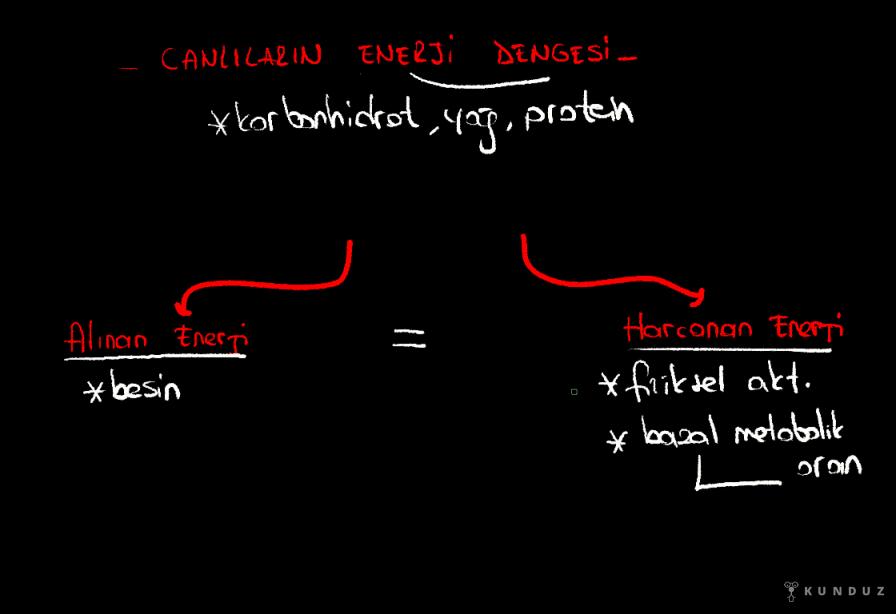 _ CANLILARIN ENERJİ DENGESİ _
* karbonhidrat, yağ, protein
Alınan Enerji = Harcanan Enerji
* besin
* fiziksel akt.
* bazal metabolik
oran
KUNDUZ